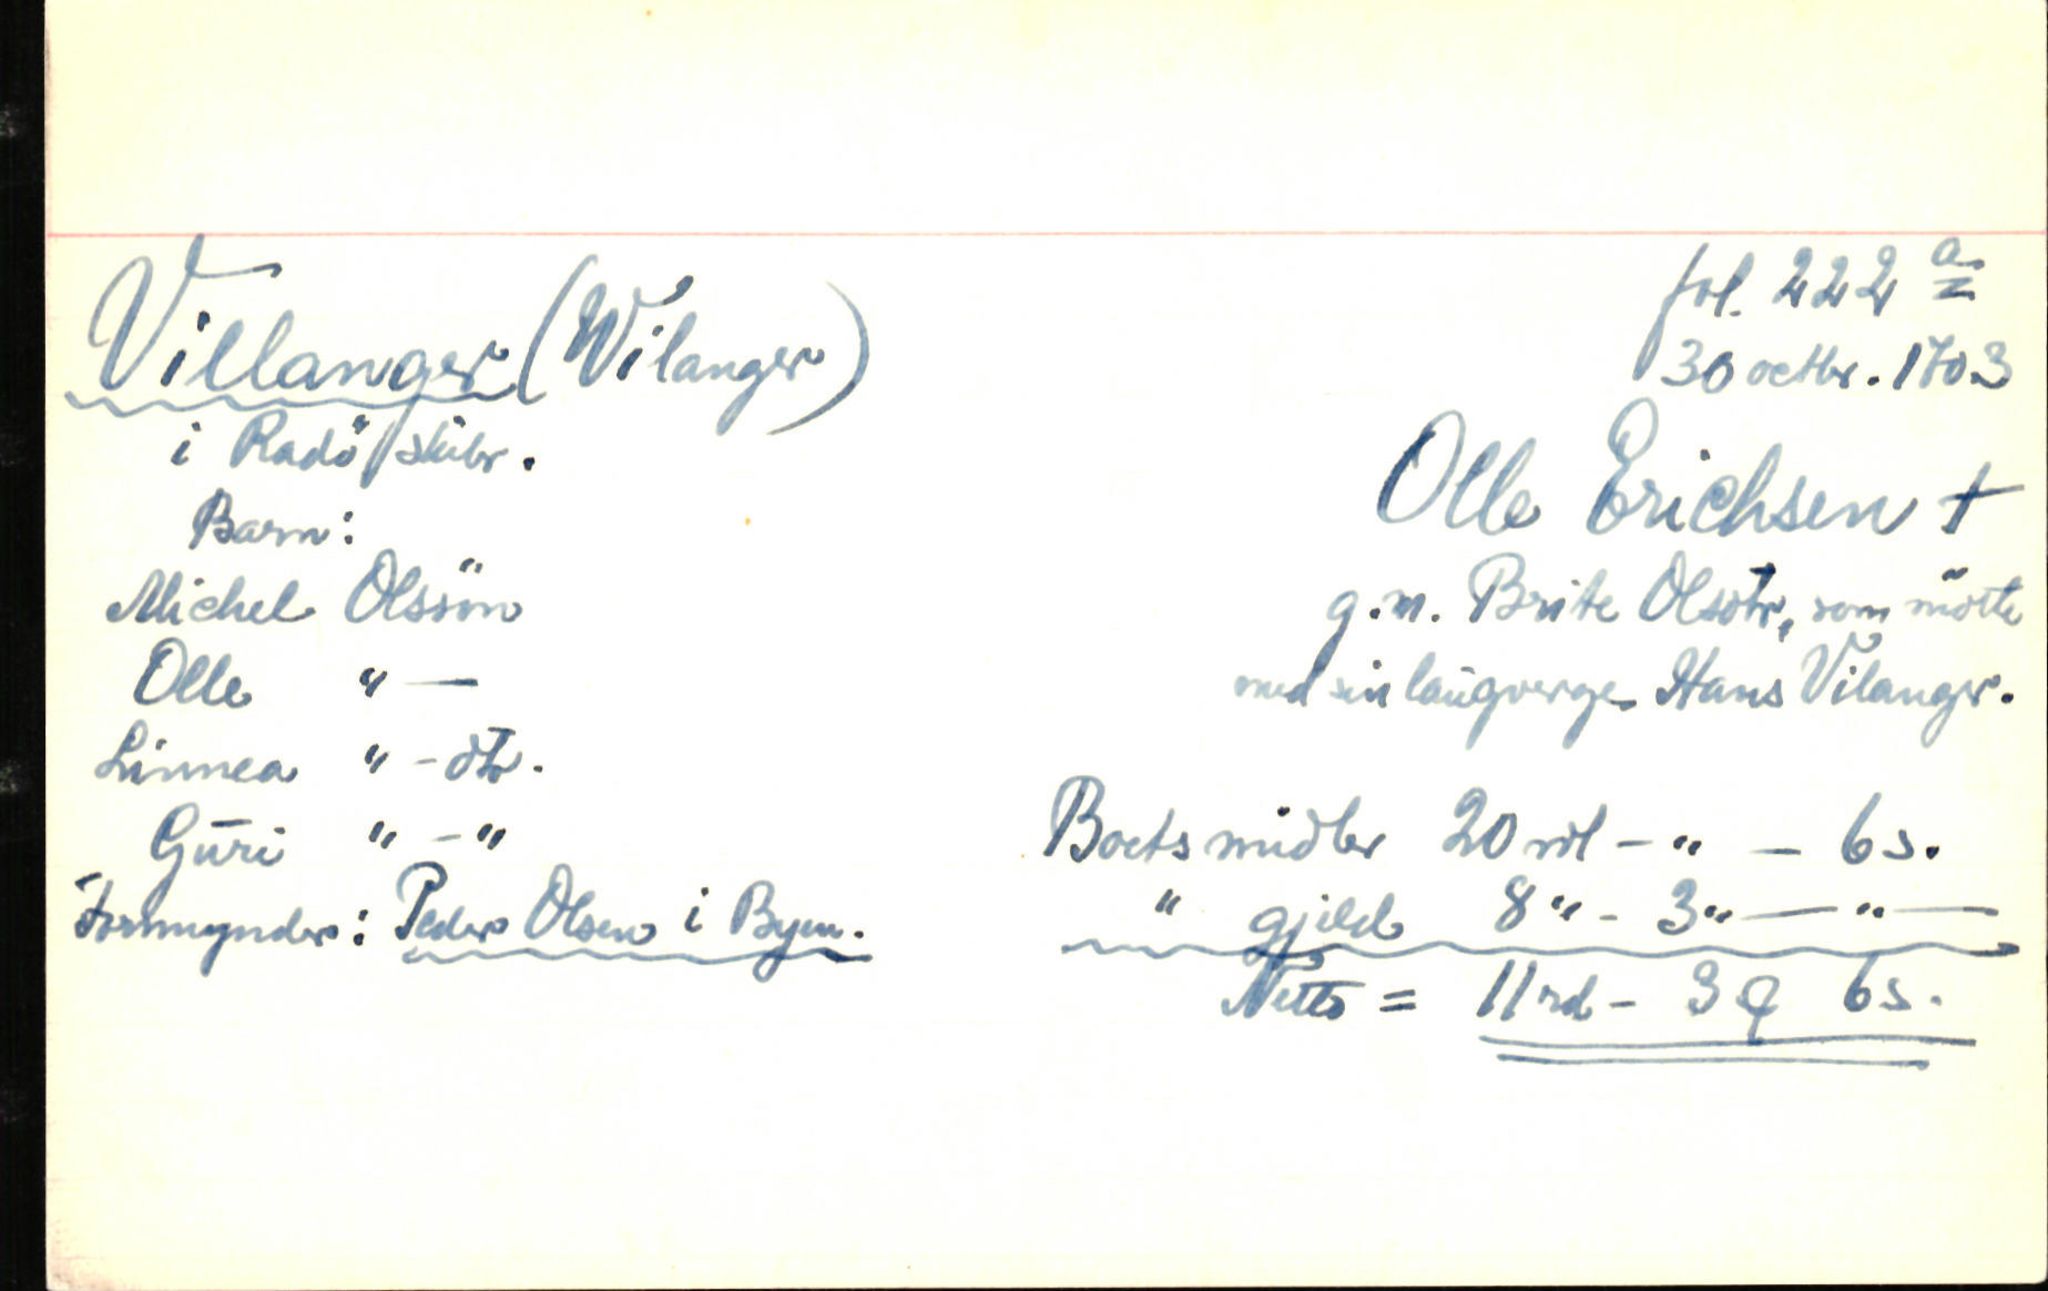 Villanger (Wilanger)
i Radö skibr.
Barn:
Michel Olssön
Olle " —
Linnea " - dtr.
Guri " - "
Formynder: Peder Olsen i Byen.
fol. 222 a
30 octbr. 1703
Olle Erichsen †
g.m. Brite Olsdtr, som mötte
med sin laugverge Hans Vilanger.
Boets midler 20 rdl - " - 6 s.
" gjeld 8 " - 3 " — " —
Netto = 11 rd - 3 ꝗ 6 s.